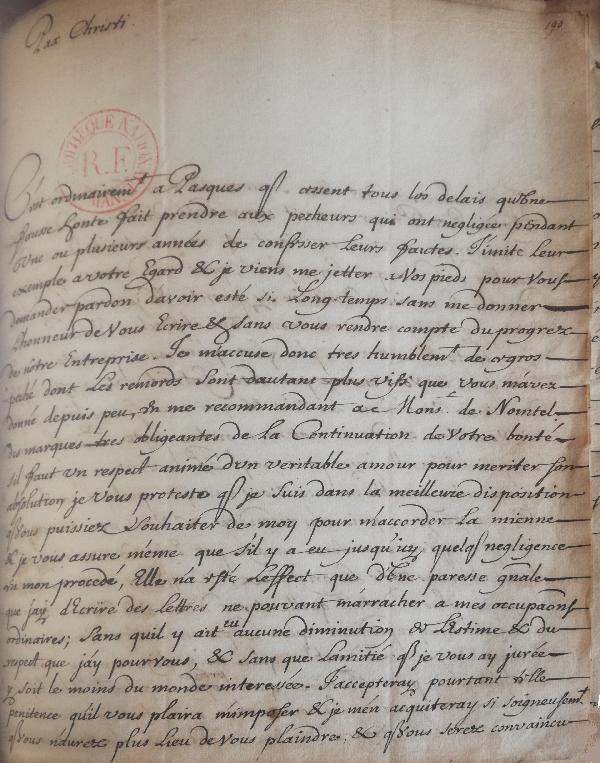 Pax Christi.
190
BIBLIOTHEQUE NATIONALE
R.F.
C'est ordinairem.t a Pasques q̃ cessent tous les delais qu'vne
fausse honte fait prendre aux pecheurs qui ont negligée pendant
vne ou plusieurs années de confesser leurs fautes. J'imite leur
exemple a votre Egard & je viens me jetter a vos pieds pour vous
demander pardon davoir esté si Long temps sans me donner
Lhonneur de Vous Ecrire & sans vous rendre compte du progrez
de nôtre Entreprise. Je maccuse donc tres humblem.t de ce gros
peché dont Les remords Sont dautant plus vifs que vous m'avez
donné depuis peu, En me recommandant a Mons.r de Nointel
des marques tres obligeantes de la Continuation de Votre bonté
sil faut vn respect animé dvn veritable amour pour meriter son
absolution je vous proteste q̃ je suis dans la meilleure disposition
q̃ Vous puissiez Souhaiter de moy pour m'accorder la mienne
& je vous assure même que s'il y a eu jusqu'icy quelq̃ negligence
en mon procedé, Elle n'a esté Leffect que d'Vne paresse gñale
que jay d'Ecrire des Lettres ne pouvant m'arracher a mes occupaõns
ordinaires; Sans quil y ait eu aucune diminution de L'estime & du
respect que j'ay pour vous, & sans que Lamitié q̃ je vous ay jurée
y soit le moins du monde interessée. J'accepteray pourtant telle
penitence qu'il vous plaira m'imposer & je men acquiteray si soigneusem.t
q̃ Vous n'aurez plus Lieu de Vous plaindre. & q̃ Vous serez convaincu